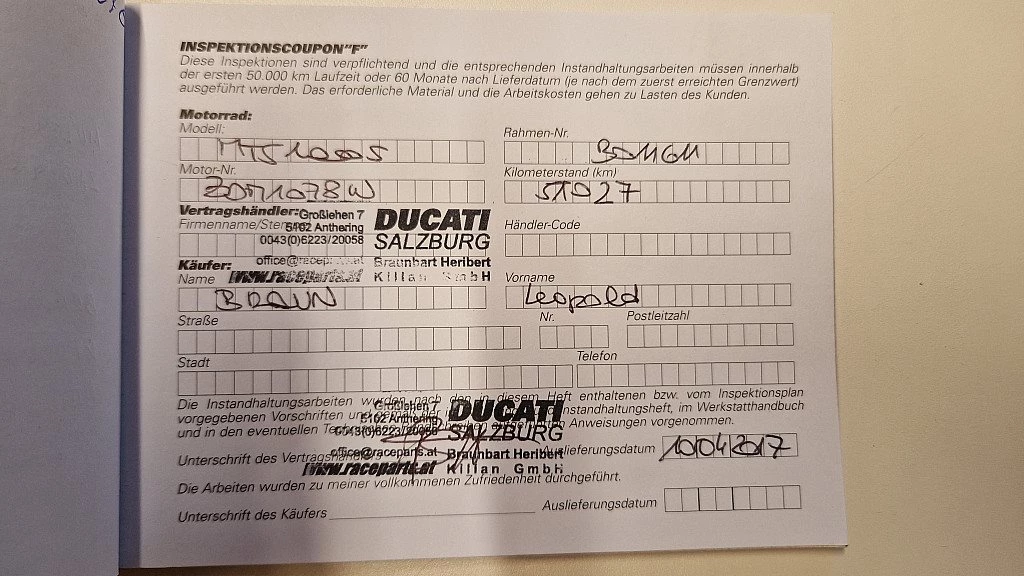 INSPEKTIONSCOUPON"F"
Diese Inspektionen sind verpflichtend und die entsprechenden Instandhaltungsarbeiten müssen innerhalb
der ersten 50.000 km Laufzeit oder 60 Monate nach Lieferdatum (je nach dem zuerst erreichten Grenzwert)
ausgeführt werden. Das erforderliche Material und die Arbeitskosten gehen zu Lasten des Kunden.
Motorrad:
Modell: Rahmen-Nr.
MTS1000S
Motor-Nr. Kilometerstand (km)
ZDM1078W 51027
Vertragshändler: Großlehen 7 DUCATI
Firmenname/Stempel 5102 Anthering SALZBURG Händler-Code
0043(0)6223/20058
Käufer: office@raceparts.at Braunbart Heribert
Name www.raceparts.at Kilian GmbH Vorname
BRAUN Leopold
Straße Nr. Postleitzahl
Stadt Telefon
Die Instandhaltungsarbeiten wurden nach den in diesem Heft enthaltenen bzw. vom Inspektionsplan
vorgegebenen Vorschriften und Instandhaltungsheft, im Werkstatthandbuch
und in den eventuellen Anweisungen vorgenommen.
Großlehen 7 DUCATI
5102 Anthering SALZBURG
0043(0)6223/20058
office@raceparts.at Braunbart Heribert
www.raceparts.at Kilian GmbH
Unterschrift des Vertragshändlers Auslieferungsdatum 10042017
Die Arbeiten wurden zu meiner vollkommenen Zufriedenheit durchgeführt.
Unterschrift des Käufers Auslieferungsdatum